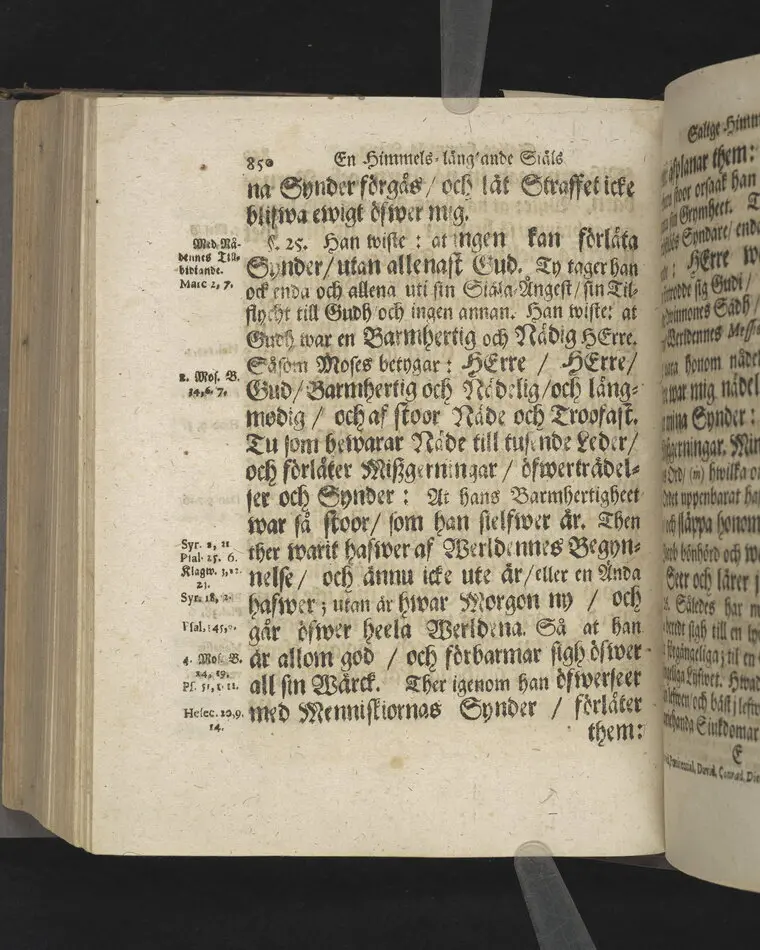 850 En Himmels-läng'ande Siäls
na Synder förgås / och låt Straffet icke
blifwa ewigt öfwer mig.
§. 25. Han wiste : at ingen kan förlåta
Synder / utan allenast Gud. Ty tager han
ock enda och allena uti sin Siäla-Ångest / sin Til-
flycht till Gudh och ingen annan. Han wiste: at
Gudh war en Barmhertig och Nådig HErre.
Såsom Moses betygar : HErre / HErre /
Gud / Barmhertig och Nådelig / och lång-
modig / och af stoor Nåde och Troofast.
Tu som bewarar Nåde till tusende Leder /
och förlåter Mißgerningar / öfwerträdel-
ser och Synder : At hans Barmhertigheet
war så stoor / som han sielfwer är. Then
ther warit hafwer af Werldennes Begyn-
nelse / och ännu icke ute är / eller en Ända
hafwer ; utan är hwar Morgon ny / och
går öfwer heela Werldena. Så at han
är allom god / och förbarmar sigh öfwer
all sin Wärck. Ther igenom han öfwerseer
med Menniskiornas Synder / förlåter
them:
Med Nå-
dennes Till-
bidiande.
Marc 2, 7.
2. Mos. B.
Syr. 2, 21
Psal. 25. 6.
Klagw. 3, 22.
Syr. 18, 2.
Psal. 145, 9.
4. Mos. B.
14, 19.
Ps. 51, 1. 11.
Hesec. 20, 9.
14.
Salige Himm
planar them:
stoor orsaak han
Grymheet. T
Syndare / end
HErre w
sig Gudi /
Sädh /
Werldennes
honom nådel
war mig nådel
mina Synder :
gerningar. Min
Ord / (m) hwilka
uppenbarat ha
släppa honom
bönhörd och w
Seer och lärer
Således har
sigh till en
Siukdomar
E